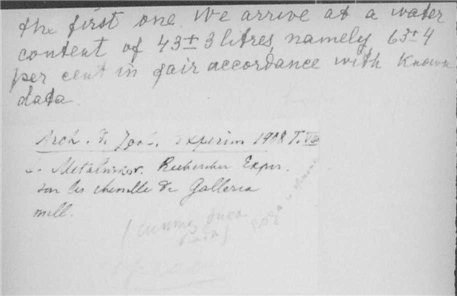 the first one. We arrive at a water
content of 43±3 litres, namely 63±4
per cent in fair accordance with known
data.
Arch. de Zool. experim 1908 T.
Metalnikov. Recherches Exper.
sur les chenille de Galleria
mell.